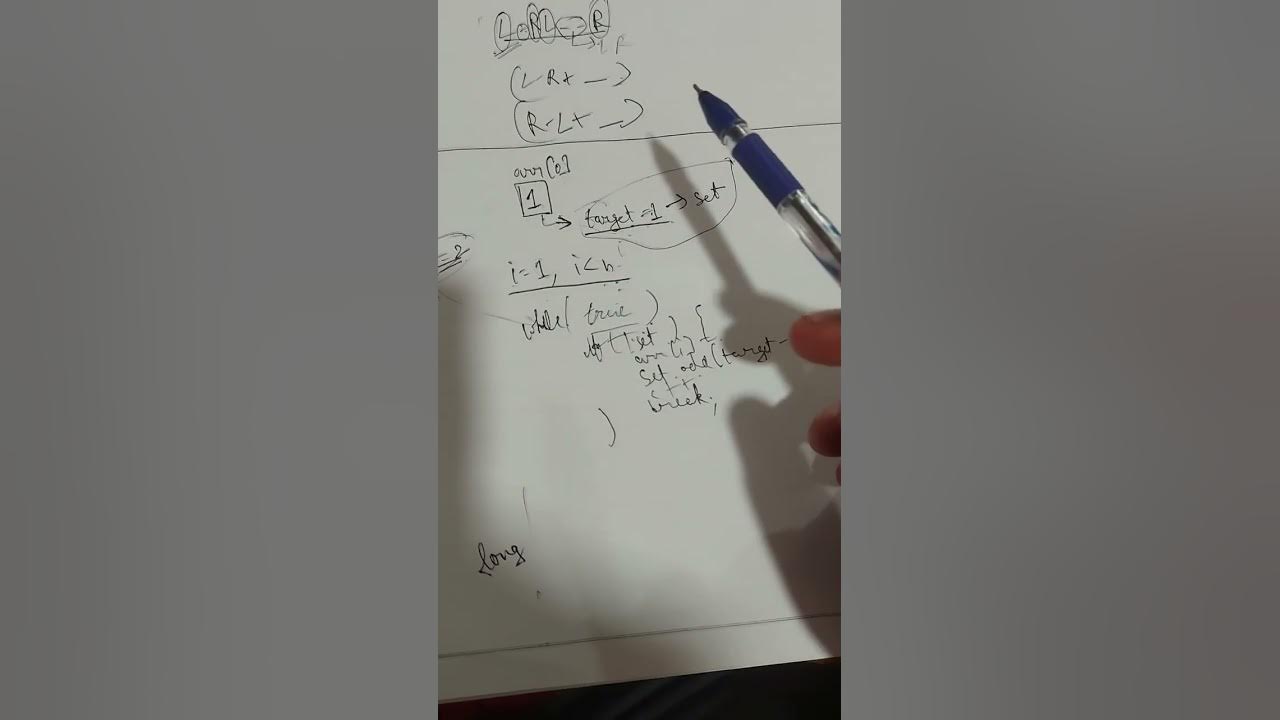 (L R + —)
(R - L + —)
arr[0]
1
target = 1 → set
= 2
i = 1, i < n
while( true )
if ( ! set ) {
arr[i]
set.add(target -
break;
}
long